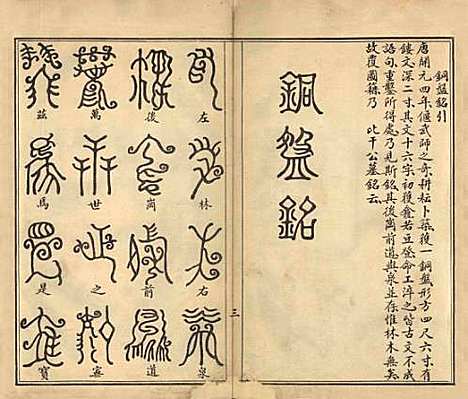 銅盤銘引
唐開元四年偃武師之奇耕耘卜築獲一銅盤形方四尺六寸有
鏤文深二寸其文十六字初獲若豆登命工淬之皆古文不成
語句重鑿所得處乃見斯銘其後崗前道與泉並存惟林木無矣
故覆籍乃 比干公墓銘云
銅盤銘
三
左林右泉
後崗前道
萬世之寧
茲焉是寶